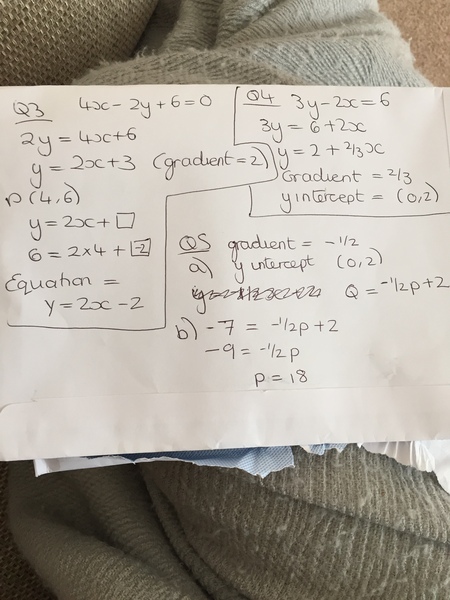 Q3 4x - 2y + 6 = 0
2y = 4x + 6
y = 2x + 3 (gradient = 2)
P (4,6)
y = 2x + □
6 = 2 x 4 + -2
Equation =
y = 2x - 2
Q4 3y - 2x = 6
3y = 6 + 2x
y = 2 + 2/3 x
Gradient = 2/3
y intercept = (0,2)
Q5 gradient = -1/2
a) y intercept (0,2)
Q = -1/2 p + 2
b) -7 = -1/2 p + 2
-9 = -1/2 p
p = 18